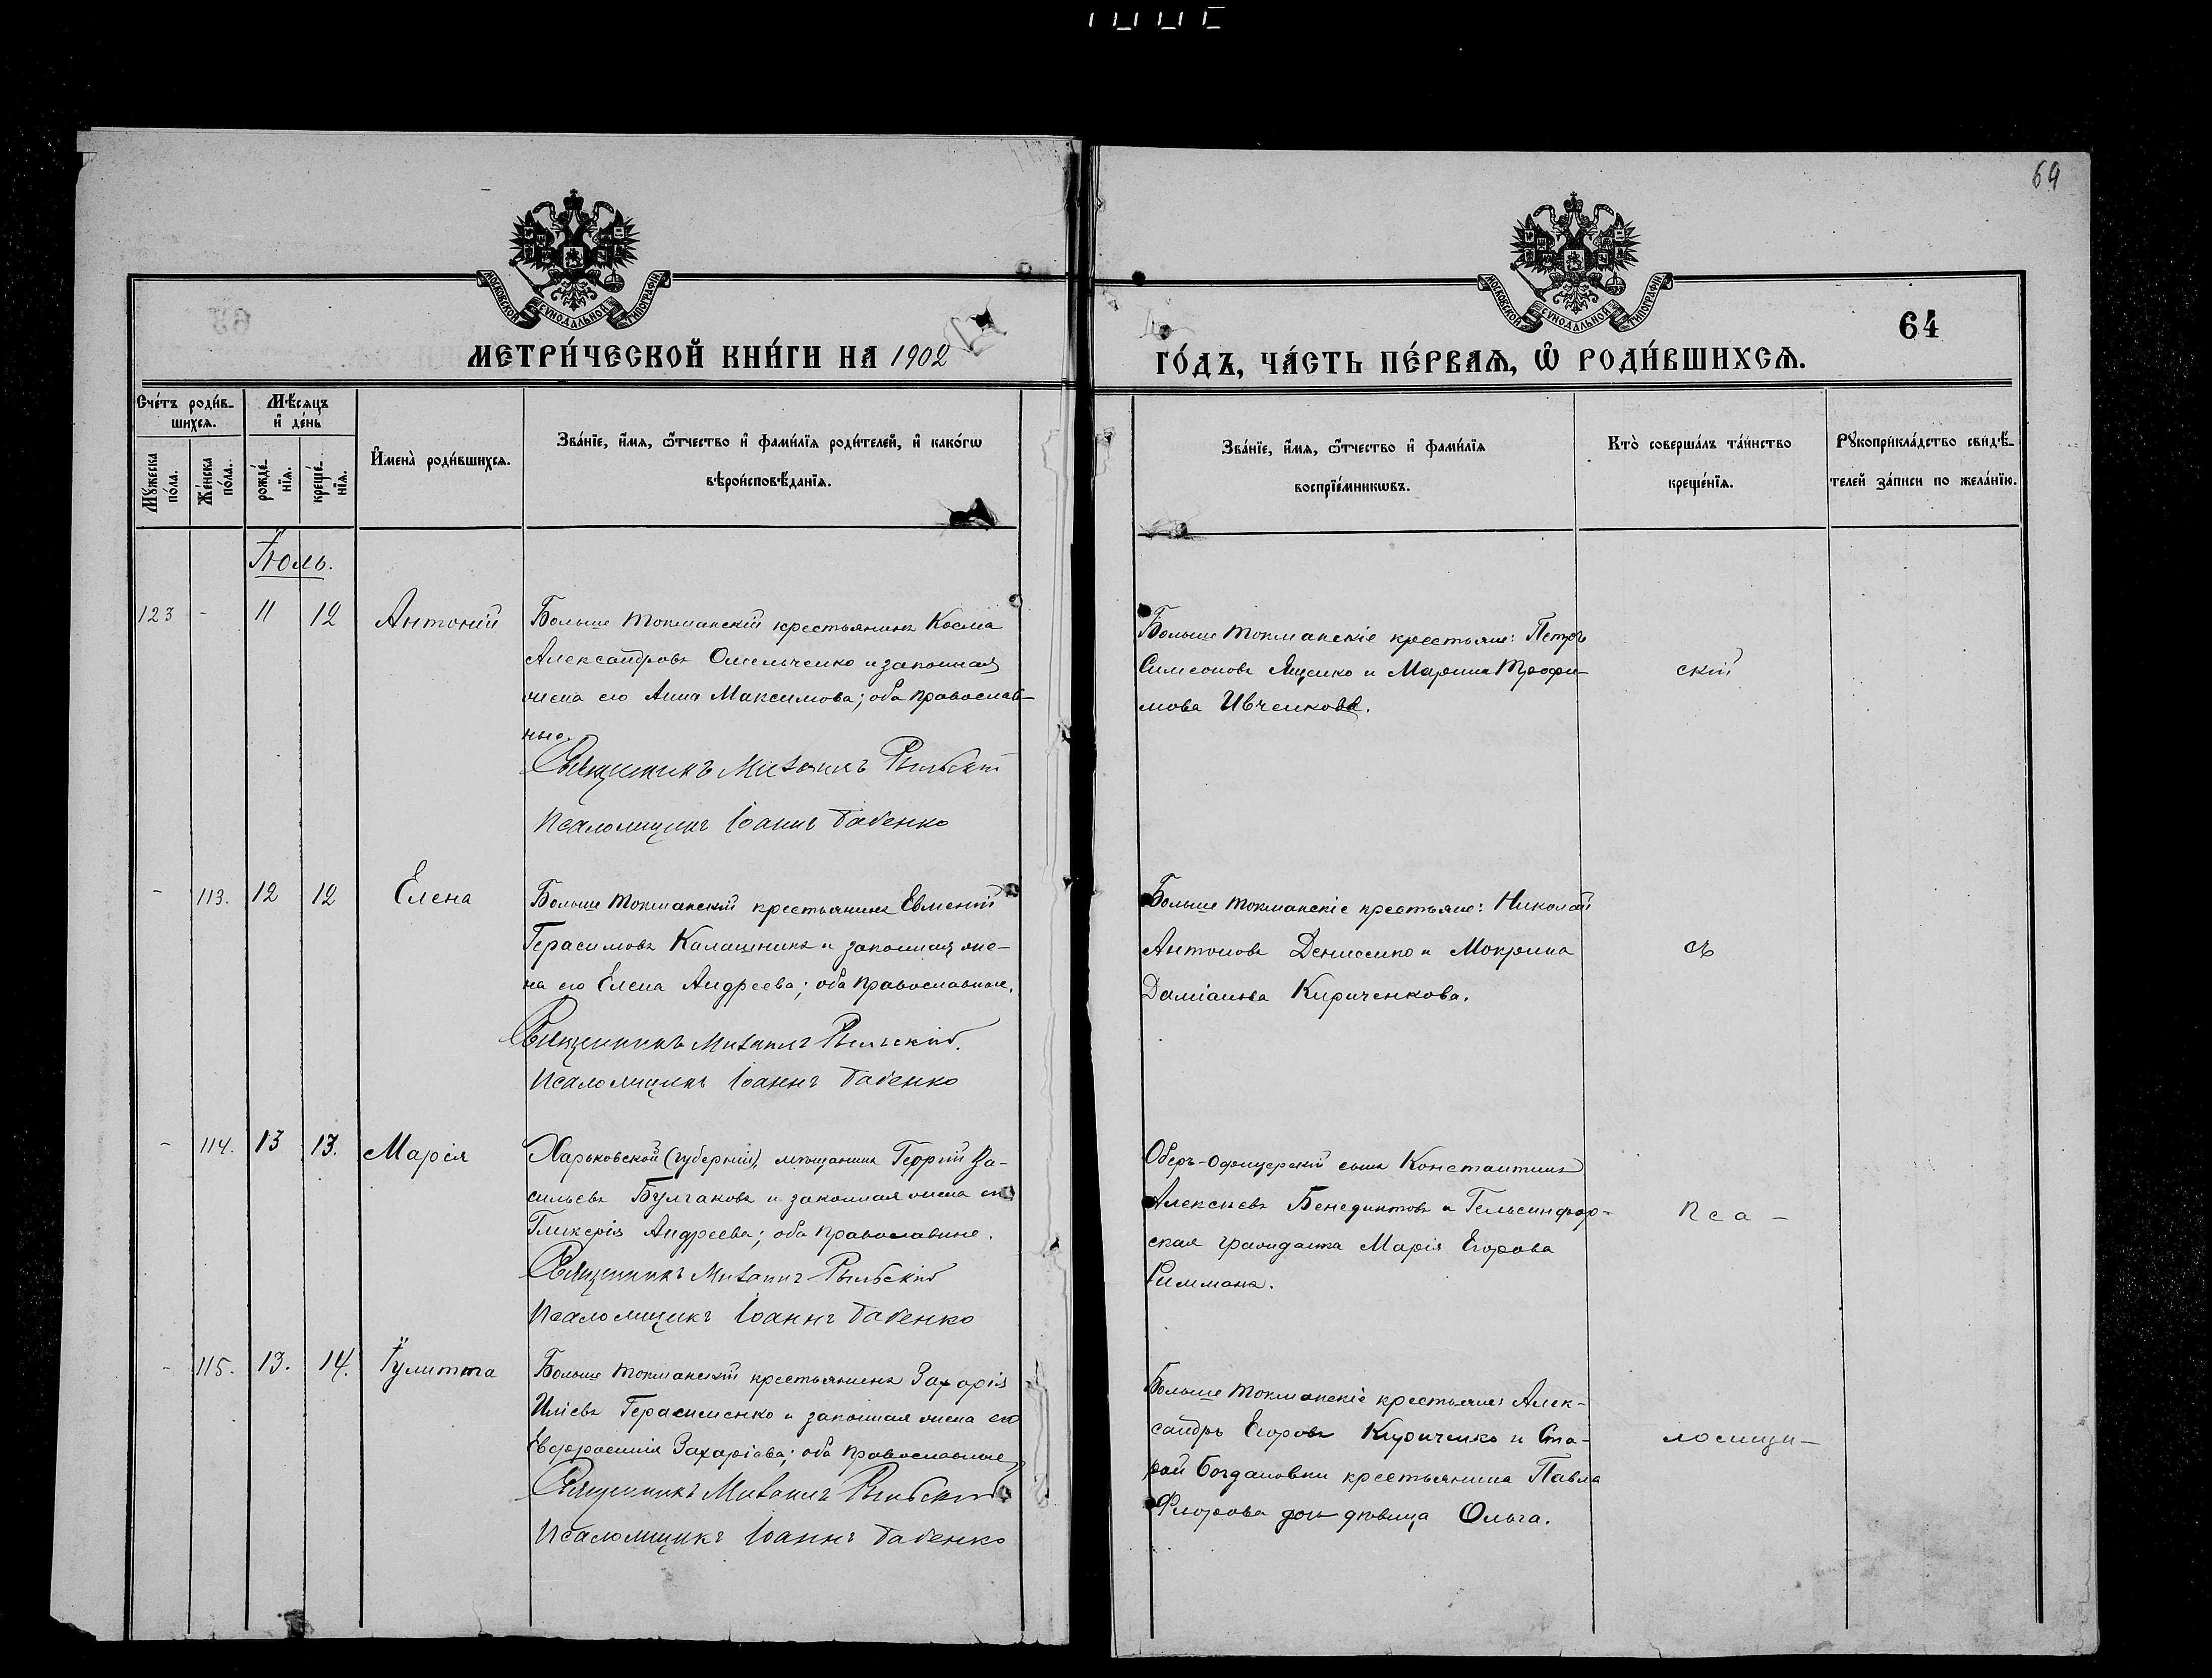 69
64
МОСКОВСКОЙ СѴНОДАЛЬНОЙ ТИПОГРАФІИ
МОСКОВСКОЙ СѴНОДАЛЬНОЙ ТИПОГРАФІИ
МЕТРИ́ЧЕСКОЙ КНИ́ГИ НА 1902
ГО́ДЪ, ЧА́СТЬ ПЕ́РВАѦ, Ѿ РОДИ́ВШИХСѦ.
Сче́тъ роди́в-
шихсѧ.
Мѣ́сѧцъ
и҆ де́нь
Мꙋ́жеска
по́ла.
Же́нска
по́ла.
рожде́-
нїѧ.
креще́-
нїѧ.
И҆мена̀ роди́вшихсѧ.
Зва́нїе, и҆́мѧ, ѻ҆́тчество и҆ фами́лїѧ роди́телей, и҆ како́гѡ
вѣроисповѣ́данїѧ.
Зва́нїе, и҆́мѧ, ѻ҆́тчество и҆ фами́лїѧ
воспрїе́мникѡвъ.
Кто̀ соверша́лъ та́инство
креще́нїѧ.
Рꙋкоприкла́дство свидѣ́-
телей за́писи по жела́нїю.
Іюль.
123 - 11 12 Антоній
Больше Токмакскій крестьянинъ Косма
Александровъ Омельченко и законная
жена его Анна Максимова; оба православ-
ные.
Священникъ Михаилъ Рыльскій
Псаломщикъ Іоаннъ Бабенко
Больше Токмакскіе крестьяне: Петръ
Симеоновъ Яценко и Марина Трофи-
мова Ивченкова.
скій
- 113. 12 12 Елена
Больше Токмакскій крестьянинъ Евменій
Герасимовъ Калашникъ и законная же-
на его Елена Андреева; оба православные.
Священникъ Михаилъ Рыльскій.
Псаломщикъ Іоаннъ Бабенко
Больше Токмакскіе крестьяне: Николай
Антоновъ Денисенко и Мокрина
Даміанова Кириченкова.
съ
- 114. 13 13. Марія
Харьковской (губерніи), мѣщанинъ Георгій Ва-
сильевъ Булгаковъ и законная жена его
Гликерія Андреева; оба православные.
Священникъ Михаилъ Рыльскій
Псаломщикъ Іоаннъ Бабенко
Оберъ-офицерскій сынъ Константинъ
Алексѣевъ Бенедиктовъ и Гельсингфор-
ская гражданка Марія Егорова
Риммана.
пса -
- 115. 13. 14. Іулитта
Больше Токмакскій крестьянинъ Захарія
Иліевъ Герасименко и законная жена его
Евфросинія Захаріева; оба православные
Священникъ Михаилъ Рыльскій
Псаломщикъ Іоаннъ Бабенко
Больше Токмакскіе крестьяне: Алек-
сандръ Егоровъ Кириченко и Ста-
рой Богдановки крестьянина Павла
дѣвица Ольга.
ломщи-